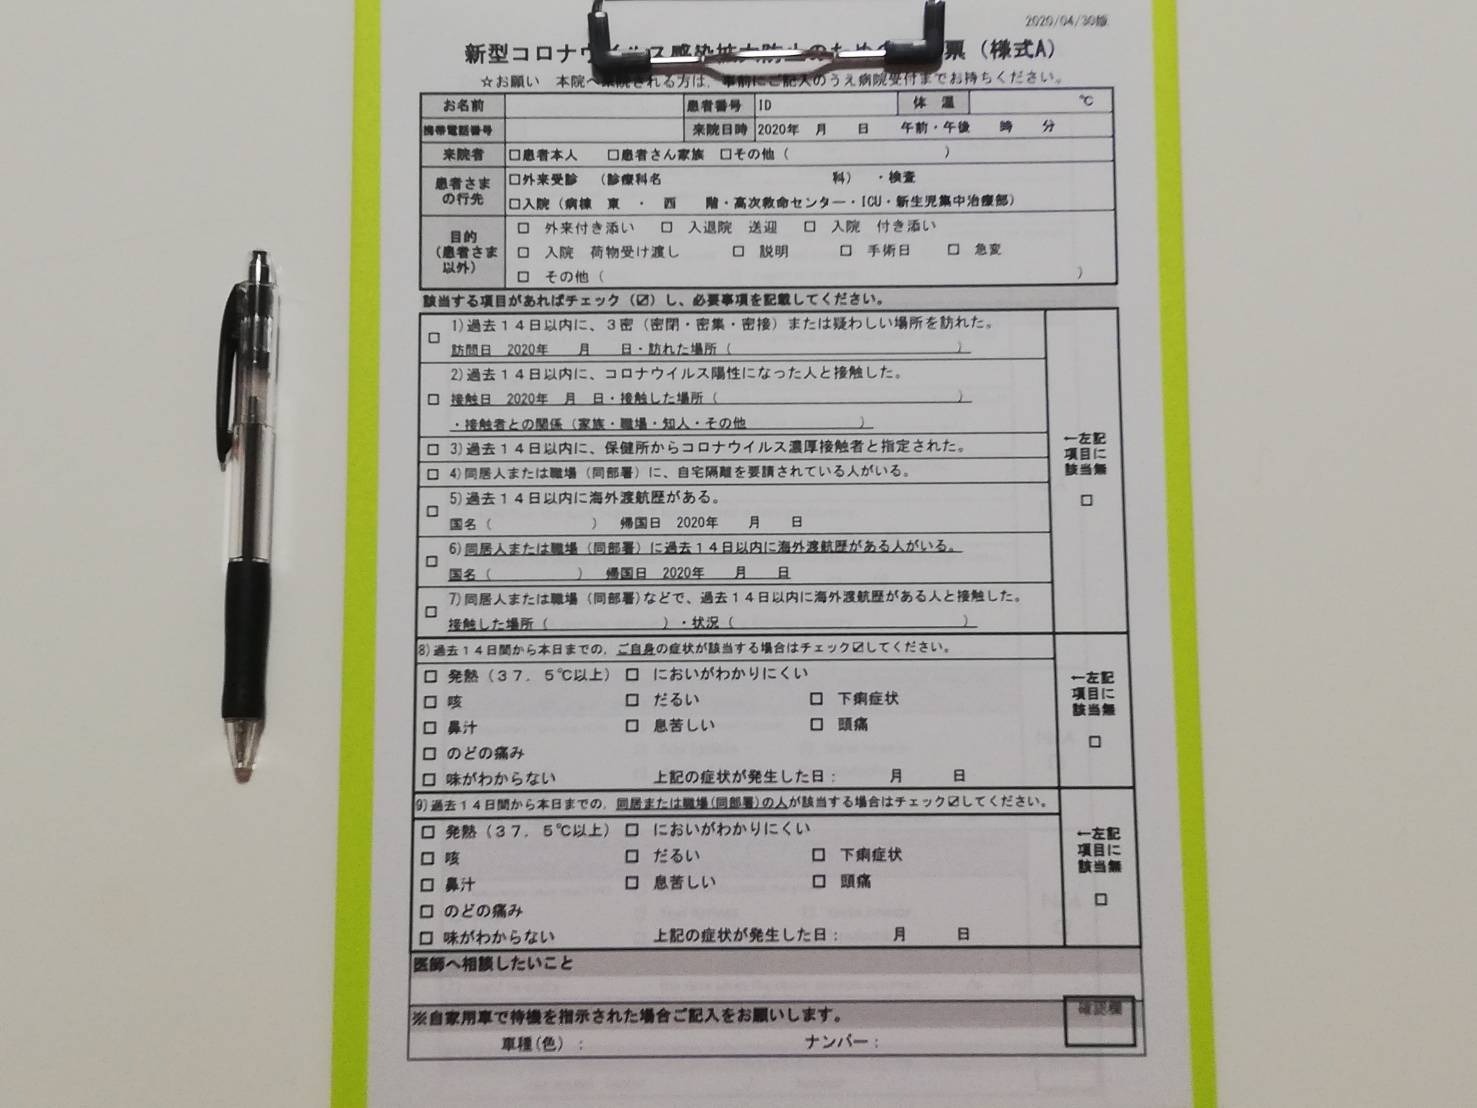 2020/04/30版
新型コロナウイルス感染拡大防止のための 票（様式A）
☆お願い　本院へ来院される方は、事前にご記入のうえ病院受付までお持ちください。
お名前　患者番号　ID　体　温　℃
携帯電話番号　来院日時　2020年　月　日　午前・午後　時　分
来院者　□患者本人　□患者さん家族　□その他（　）
患者さまの行先　□外来受診　（診療科名　科）　・検査
□入院（病棟　東　・　西　階・高次救命センター・ICU・新生児集中治療部）
目的（患者さま以外）　□　外来付き添い　□　入退院　送迎　□　入院　付き添い
□　入院　荷物受け渡し　□　説明　□　手術日　□　急変
□　その他（　）
該当する項目があればチェック（☑）し、必要事項を記載してください。
□　1)過去１４日以内に、３密（密閉・密集・密接）または疑わしい場所を訪れた。
訪問日　2020年　月　日・訪れた場所（　）
2)過去１４日以内に、コロナウイルス陽性になった人と接触した。
□　接触日　2020年　月　日・接触した場所（　）
・接触者との関係（家族・職場・知人・その他　）
□　3)過去１４日以内に、保健所からコロナウイルス濃厚接触者と指定された。
□　4)同居人または職場（同部署）に、自宅隔離を要請されている人がいる。
□　5)過去１４日以内に海外渡航歴がある。
国名（　）　帰国日　2020年　月　日
□　6)同居人または職場（同部署）に過去１４日以内に海外渡航歴がある人がいる。
国名（　）　帰国日　2020年　月　日
□　7)同居人または職場（同部署)などで、過去１４日以内に海外渡航歴がある人と接触した。
接触した場所（　）・状況（　）
←左記
項目に
該当無
□
8)過去１４日間から本日までの、ご自身の症状が該当する場合はチェック☑してください。
□　発熱（３７．５℃以上）　□　においがわかりにくい
□　咳　□　だるい　□　下痢症状
□　鼻汁　□　息苦しい　□　頭痛
□　のどの痛み
□　味がわからない　上記の症状が発生した日：　月　日
←左記
項目に
該当無
□
9)過去１４日間から本日までの、同居または職場(同部署)の人が該当する場合はチェック☑してください。
□　発熱（３７．５℃以上）　□　においがわかりにくい
□　咳　□　だるい　□　下痢症状
□　鼻汁　□　息苦しい　□　頭痛
□　のどの痛み
□　味がわからない　上記の症状が発生した日：　月　日
←左記
項目に
該当無
□
医師へ相談したいこと
※自家用車で待機を指示された場合ご記入をお願いします。
確認欄
車種(色)：　ナンバー：